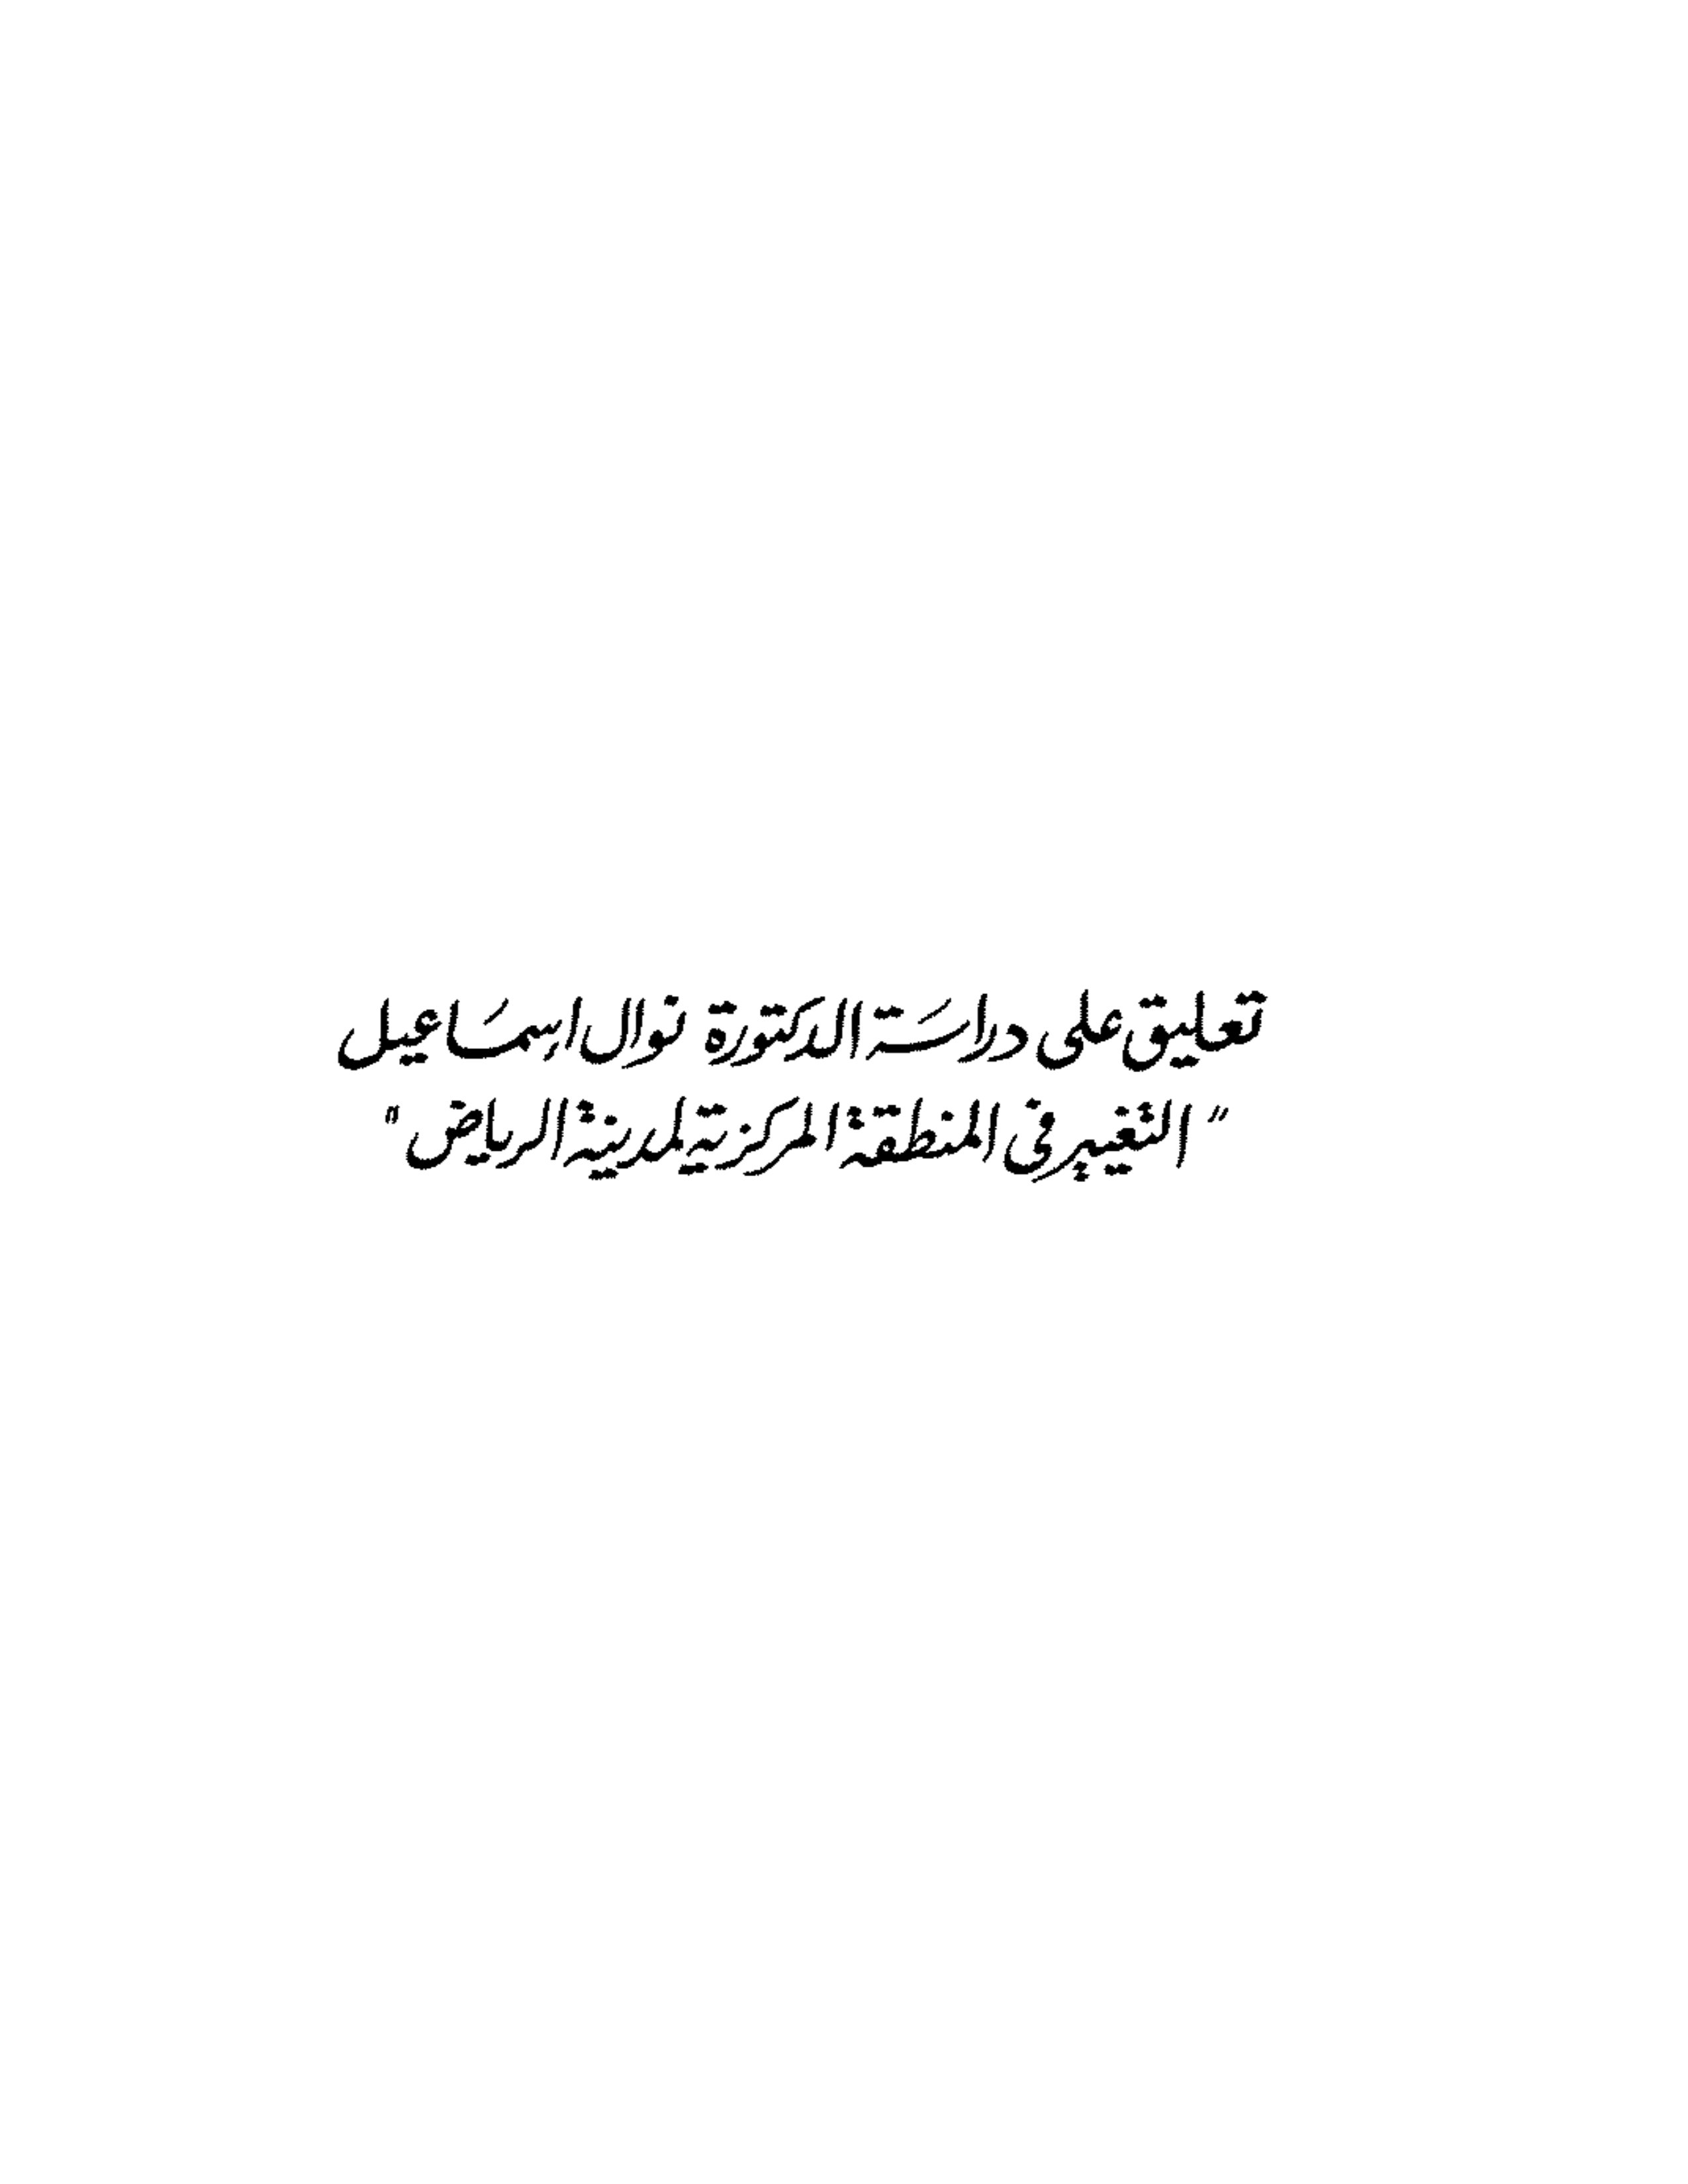 تعليق على دراسَة الدكتورة نوال اسمَاعيل
" التغيير في المنطقة المركزية لمدينة الرياض "